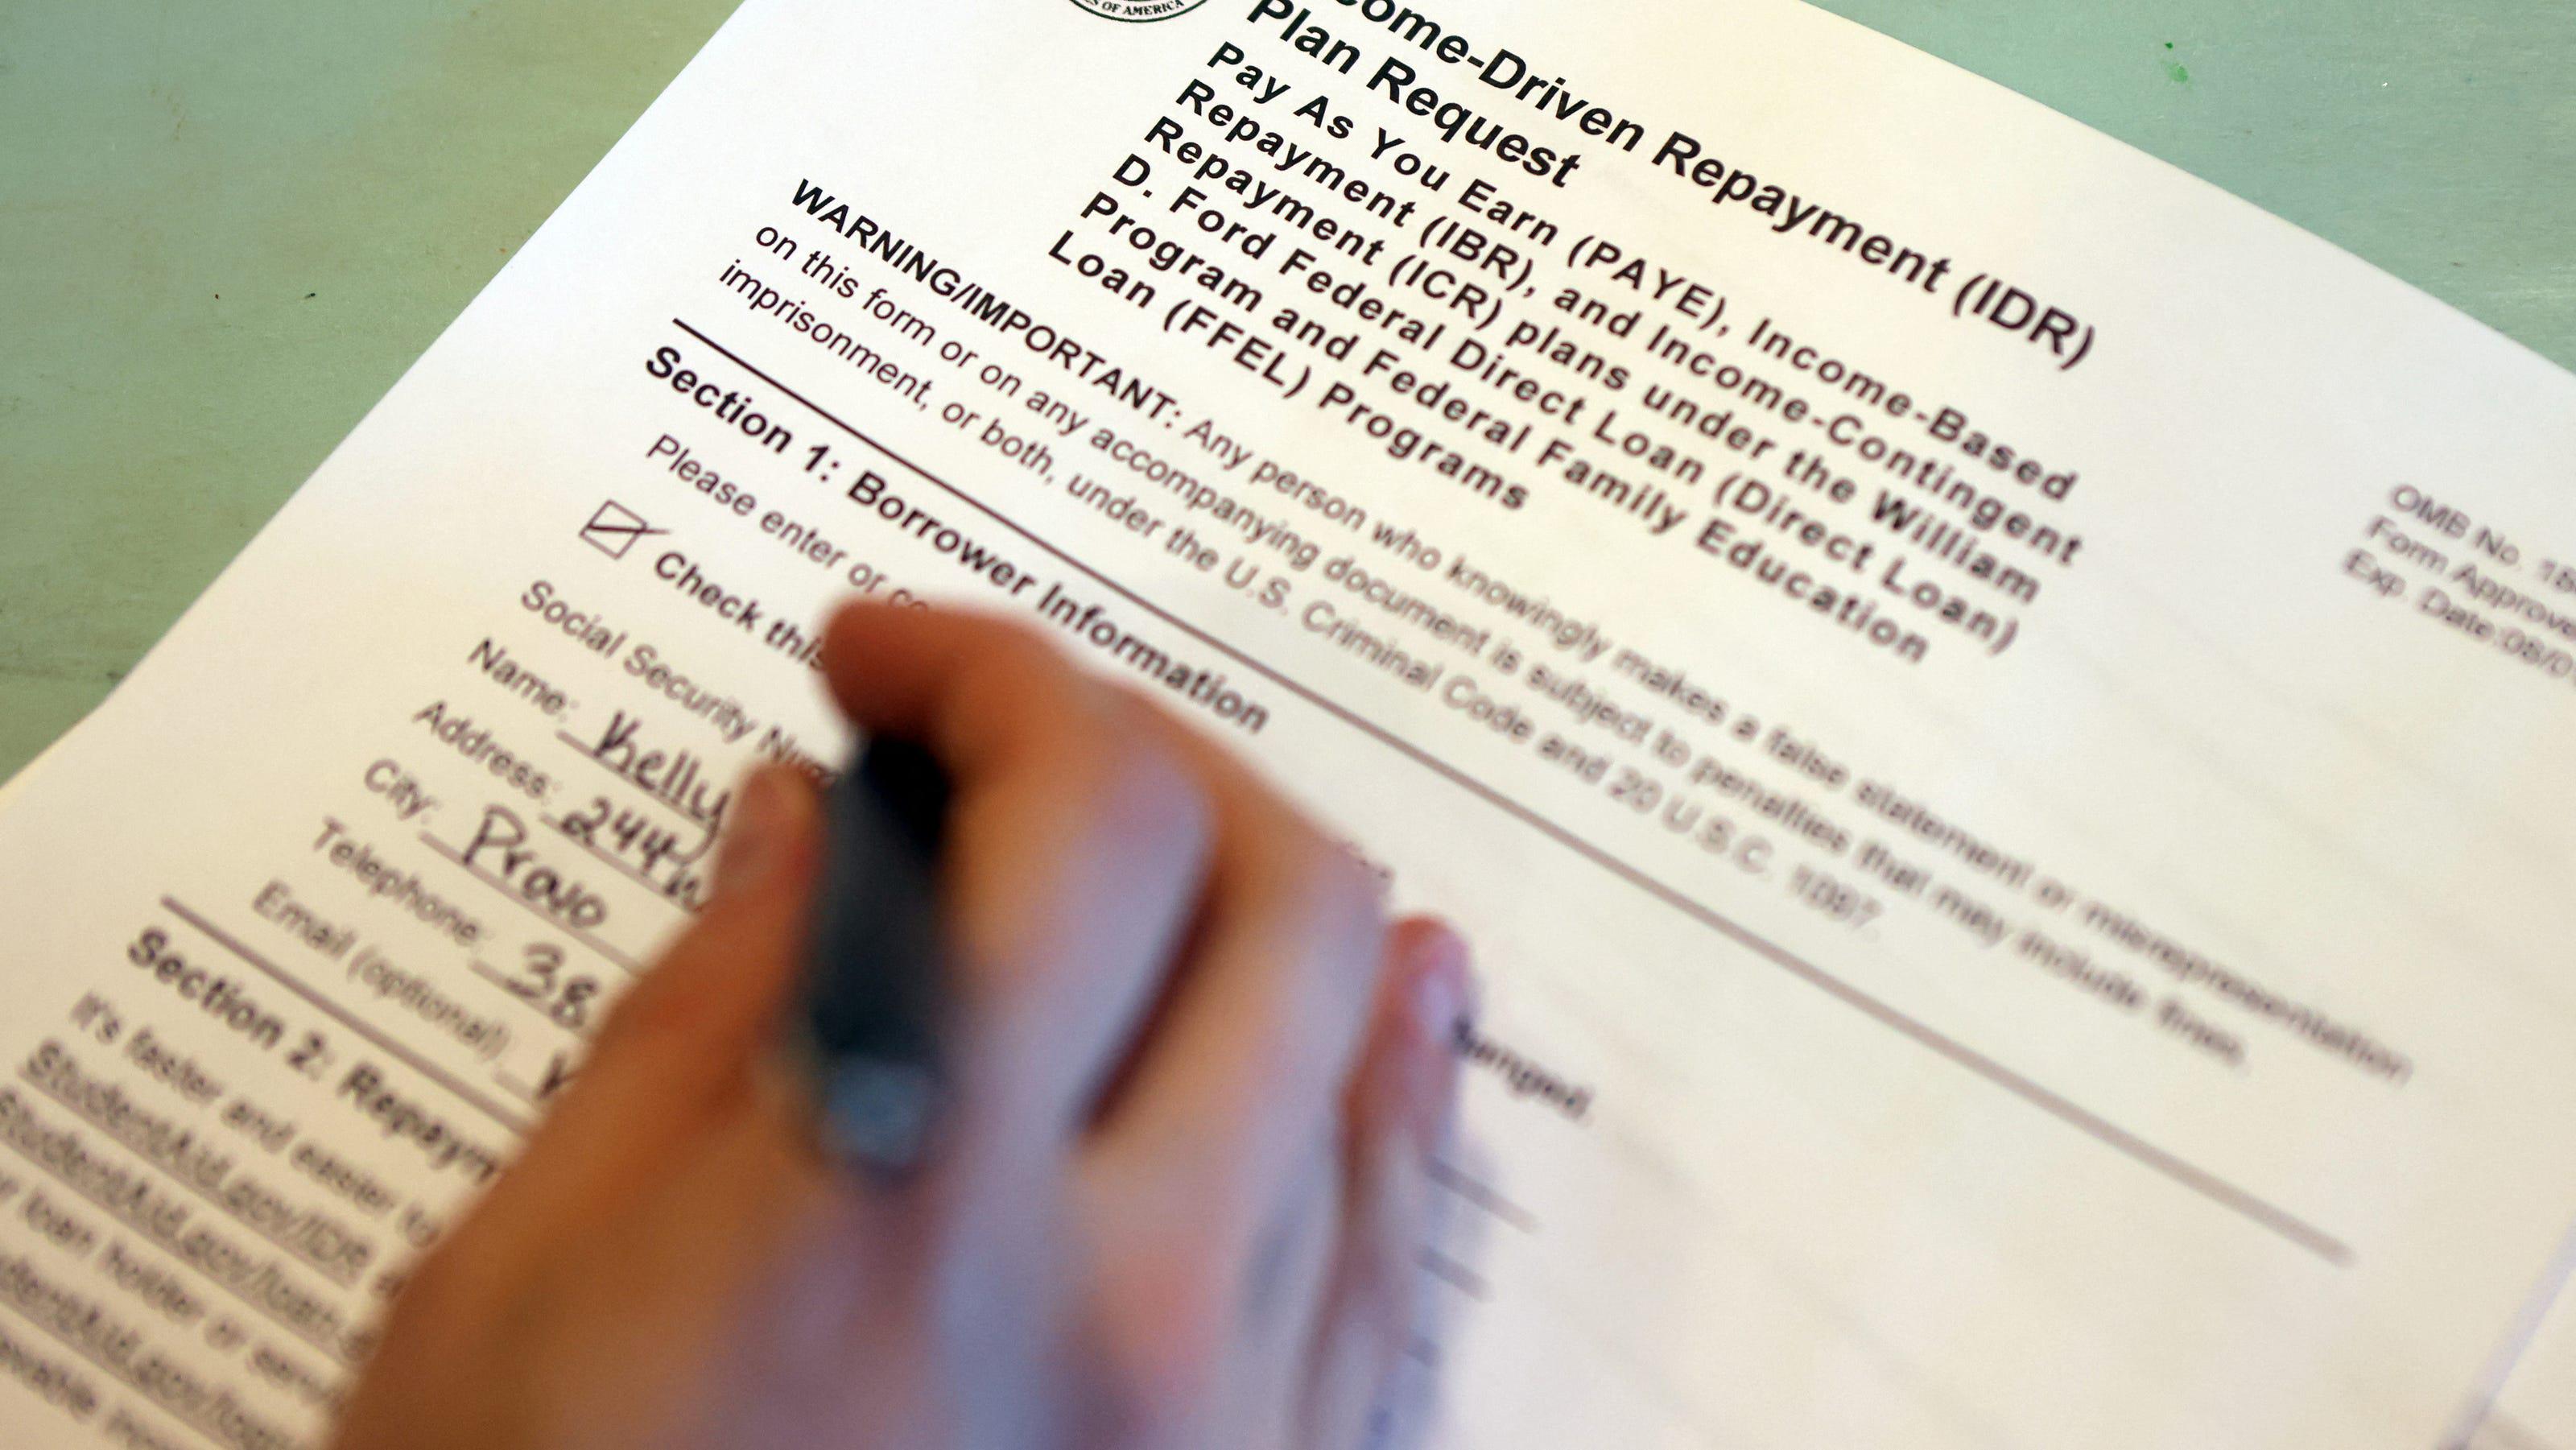 OF AMERICA
come-Driven Repayment (IDR)
Plan Request
Pay As You Earn (PAYE), Income-Based
Repayment (IBR), and Income-Contingent
Repayment (ICR) plans under the William
D. Ford Federal Direct Loan (Direct Loan)
Program and Federal Family Education
Loan (FFEL) Programs
OMB No. 18
Form Approve
Exp. Date:08/
WARNING/IMPORTANT: Any person who knowingly makes a false statement or misrepresentation
on this form or on any accompanying document is subject to penalties that may include fines,
imprisonment, or both, under the U.S. Criminal Code and 20 U.S.C. 1097.
Section 1: Borrower Information
Please enter or co
Check this
Social Security Num
Name: Kelly
Address: 244
City: Provo
Telephone: 38
Email (optional)
Section 2: Repaym
It's faster and easier to
StudentAid.gov/IDR
StudentAid.gov/loan
r loan holder or serv